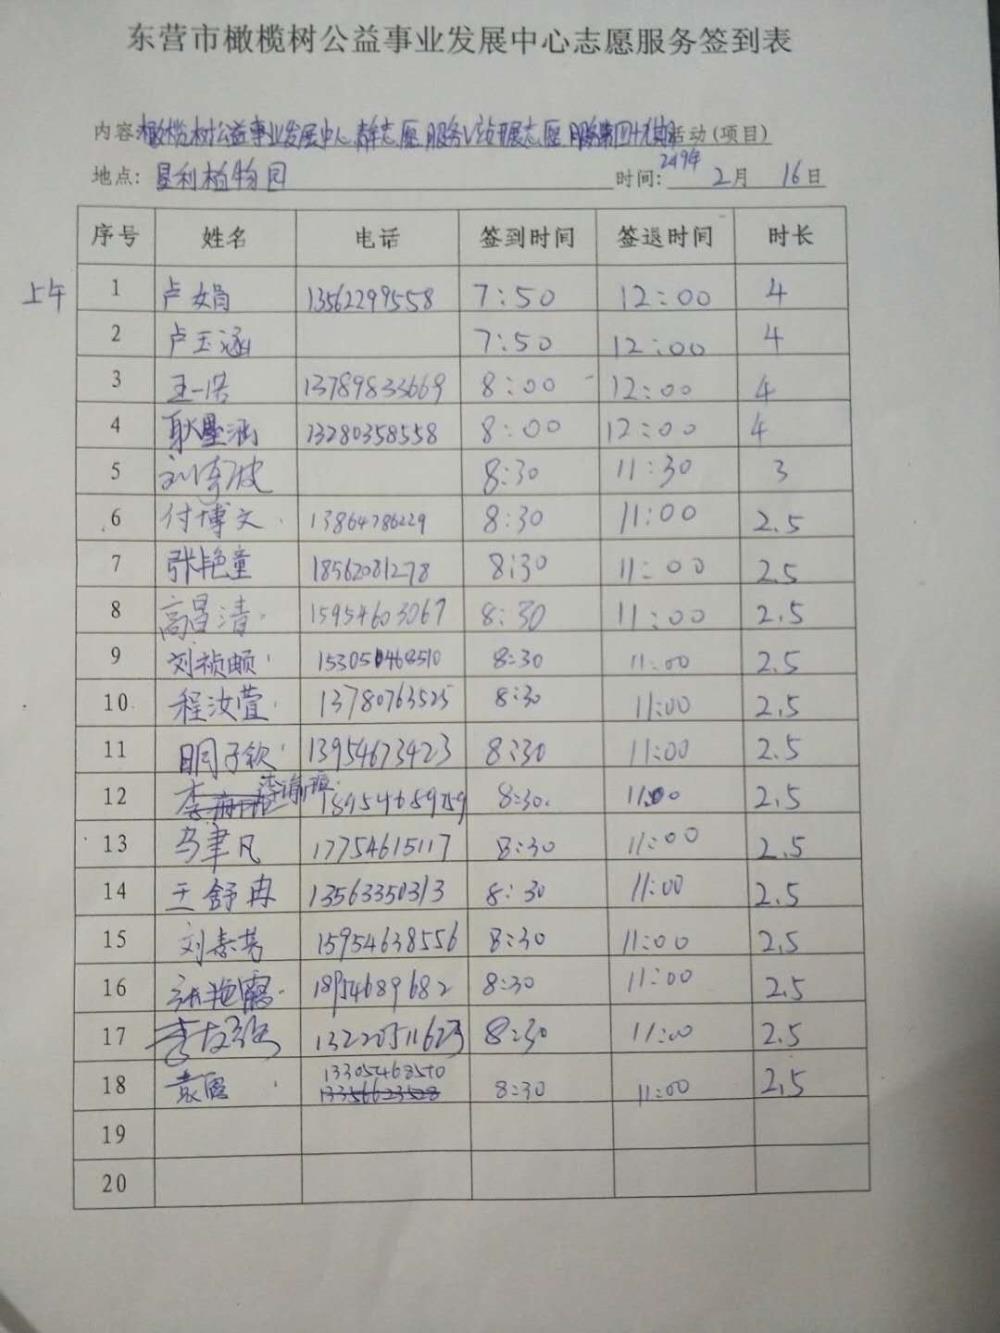 东营市橄榄树公益事业发展中心志愿服务签到表
内容:橄榄树公益事业发展中心 志愿服务 展志愿服务第四十 期活动(项目)
地点: 垦利植物园 时间: 2月 16日
序号 姓名 电话 签到时间 签退时间 时长
上午 1 卢娟 13562299558 7:50 12:00 4
2 卢玉涵 7:50 12:00 4
3 王一浩 13789833669 8:00 12:00 4
4 耿墨涵 13280358558 8:00 12:00 4
5 刘 波 8:30 11:30 3
6 付博文 13864786229 8:30 11:00 2.5
7 张艳童 18562081278 8:30 11:00 2.5
8 高昌清 15954603067 8:30 11:00 2.5
9 刘祯 8:30 11:00 2.5
10 程汝萱 13780763525 8:30 11:00 2.5
11 子钦 13954673423 8:30 11:00 2.5
12 李 8:30 11:00 2.5
13 马聿凡 17754615117 8:30 11:00 2.5
14 王舒冉 13563350313 8:30 11:00 2.5
15 刘春芳 15954638556 8:30 11:00 2.5
16 张艳霞 18954689682 8:30 11:00 2.5
17 李 8:30 11:00 2.5
18 袁 13305468510 8:30 11:00 2.5
19
20